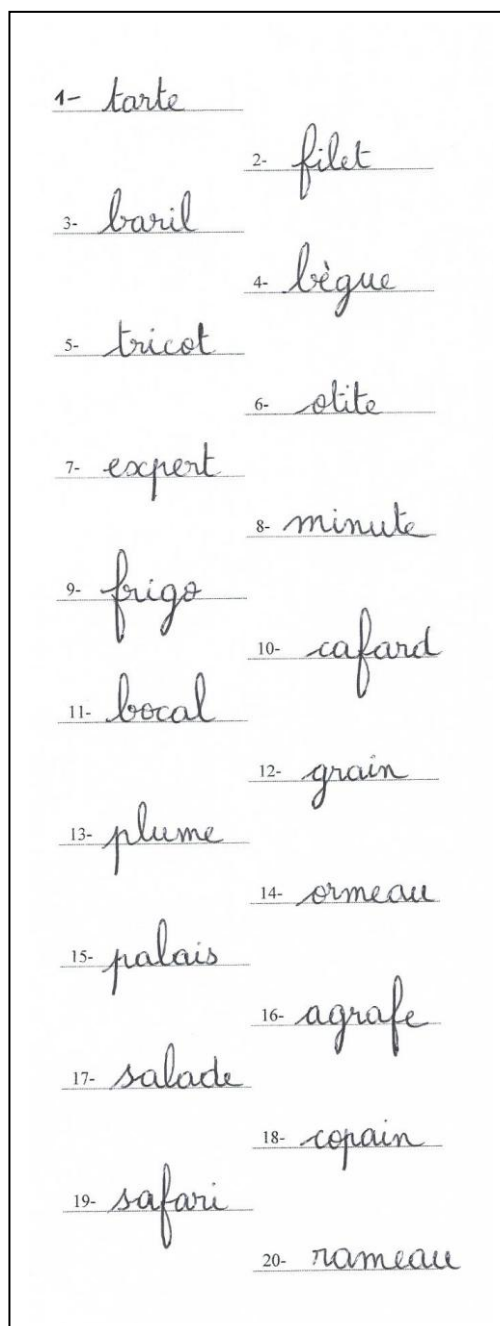 1- tarte
2- filet
3- baril
4- bègue
5- tricot
6- otite
7- expert
8- minute
9- frigo
10- cafard
11- bocal
12- grain
13- plume
14- ormeau
15- palais
16- agrafe
17- salade
18- copain
19- safari
20- rameau